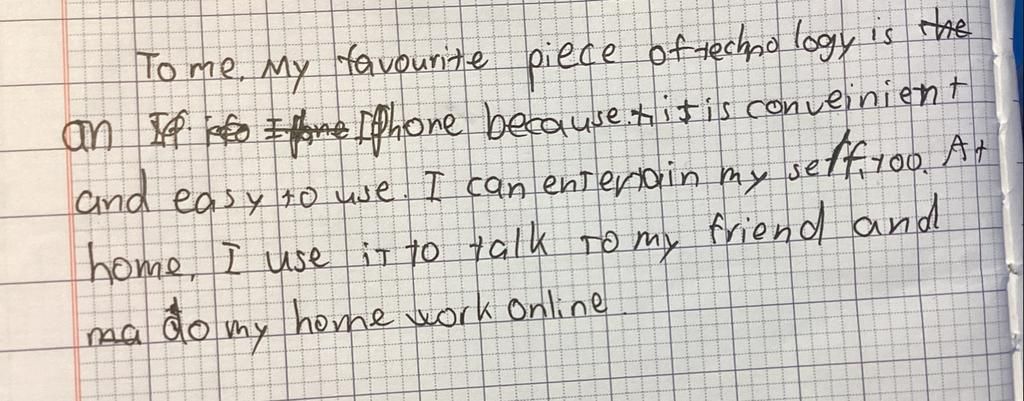 To me, My favourite piece of technology is the
an If ifo Iphone Iphone because it is conveinient
and easy to use. I can entertain my self, too. At
home, I use it to talk to my friend and
ma do my home work online.